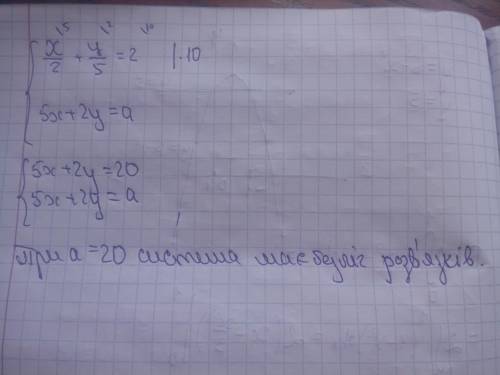 \5 \2 \10
x/2 + y/5 = 2 | · 10
5x+2y=a
5x+2y=20
5x+2y=a
при a=20 система має безліч розв'язків.